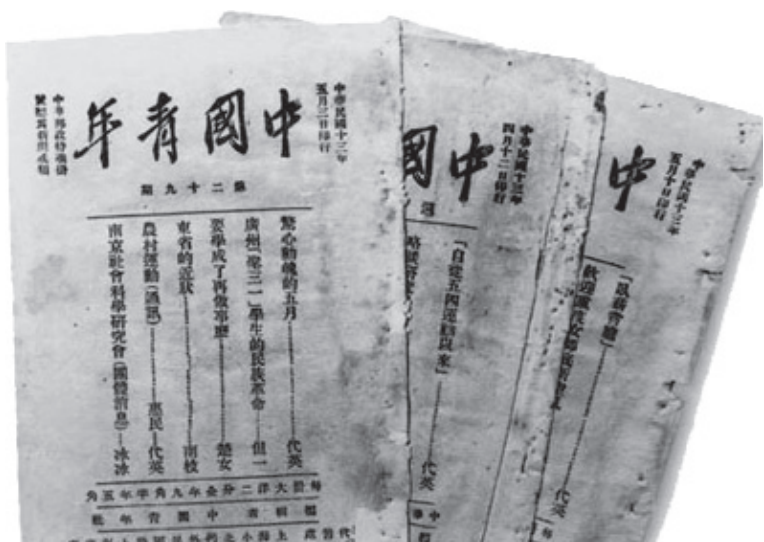 中華民國十三年
五月三日印行
中國青年
中華郵政特准掛
號認為新聞紙類
第二十九期
驚心動魄的五月………代英
學生的民族革命……但一
要學成了再做事麼………楚女
東省的近狀………南枝
農村運動(通訊)………惠民—代英
南京社會科學研究會(團體消息)—冰冰
每份大洋二分全年九角半年五角
編輯者 中國青年社
中華民國十三年
四月十二日印行
中國
「自從五四運動以來」………代英
中華民國十三年
五月十日印行
中
「臥薪嘗膽」………代英
歡迎